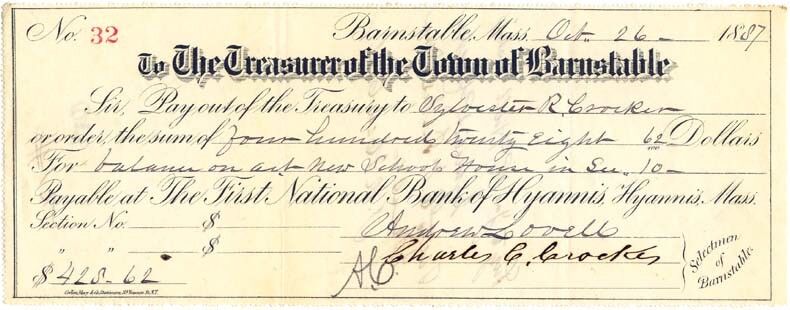 No. 32 Barnstable, Mass. Oct. 26 — 1887
To The Treasurer of the Town of Barnstable
Sir, Pay out of the Treasury to Sylvester R Crocker
or order, the sum of four hundred twenty Eight 62/100 Dollars
For balance on act New School House in Sec. 10 —
Payable at The First National Bank of Hyannis, Hyannis, Mass.
Section No. — $
" " — $
$ 428-62
Andrew Lovell
A.C. Charles C. Crocker
Selectmen of Barnstable.